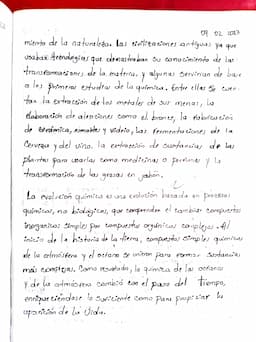 09 02 2023
miento de la naturaleza. Las civilizaciones antiguas ya que
usaban tecnologías que demostraban su conocimiento de las
transformaciones de la materia, y algunas servirían de base
a los primeros estudios de la química. Entre ellas se cuen-
tan la extracción de los metales de sus menas, la
elaboración de aleaciones como el bronce, la fabricación
de cerámica, esmaltes y vidrio, las fermentaciones de la
Cerveza y del vino, la extracción de sustancias de las
plantas para usarlas como medicinas o perfumes y la
transformación de las grasas en jabón.
La evolución química es una evolución basada en procesos
químicos, no biológicos, que comprenden el cambiar compuestos
inorgánicos simples por compuestos orgánicos complejos. Al
inicio de la historia de la tierra, compuestos simples químicos
de la atmósfera y el océano se unieron para formar sustancias
más complejas. Como resultado, la química de los océanos
y de la atmósfera cambió con el paso del tiempo,
enriqueciéndose lo suficiente como para propiciar la
aparición de la vida.